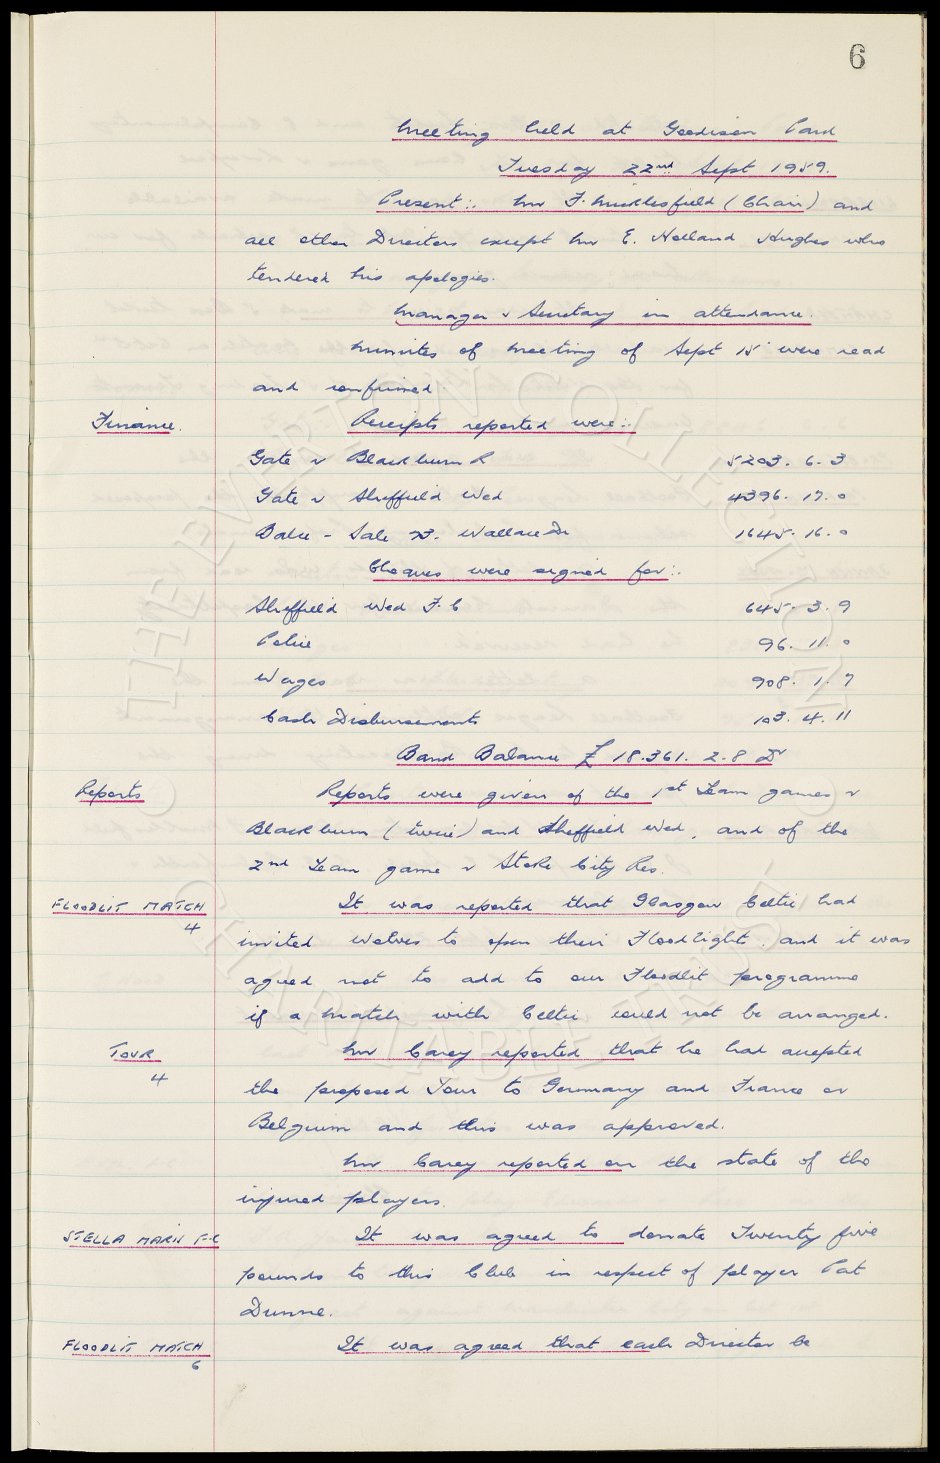 6
Meeting held at Goodison Park
Tuesday 22nd Sept 1959.
Present:. Mr F. Micklesfield (Chair) and
all other Directors except Mr E. Holland Hughes who
tendered his apologies.
Manager & Secretary in attendance.
Minutes of meeting of Sept 15 were read
and confirmed.
Finance. Receipts reported were:.
Gate v Blackburn R 5203. 6. 3
Gate v Sheffield Wed 4396. 17. 0
Balce - Sale Wallace Dr 1645. 16. 0
Cheques were signed for:.
Sheffield Wed F.C 645. 3. 9
Police 96. 11. 0
Wages 908. 1. 7
Cash Disbursements 103. 4. 11
Bank Balance £ 18.361. 2. 8 Dr
Reports Reports were given of the 1st Team games v
Blackburn (twice) and Sheffield Wed, and of the
2nd Team game v Stoke City Res.
FLOODLIT MATCH It was reported that Glasgow Celtic had
4
invited Wolves to open their Floodlight, and it was
agreed not to add to our Floodlit programme
if a match with Celtic could not be arranged.
TOUR Mr Carey reported that he had accepted
4
the proposed Tour to Germany and France or
Belgium and this was approved.
Mr Carey reported on the state of the
injured players.
STELLA MARIS F.C It was agreed to donate Twenty five
pounds to this Club in respect of player Pat
Dunne.
FLOODLIT MATCH It was agreed that each Director be
6
THE EVERTON COLLECTION
CHARITABLE TRUST